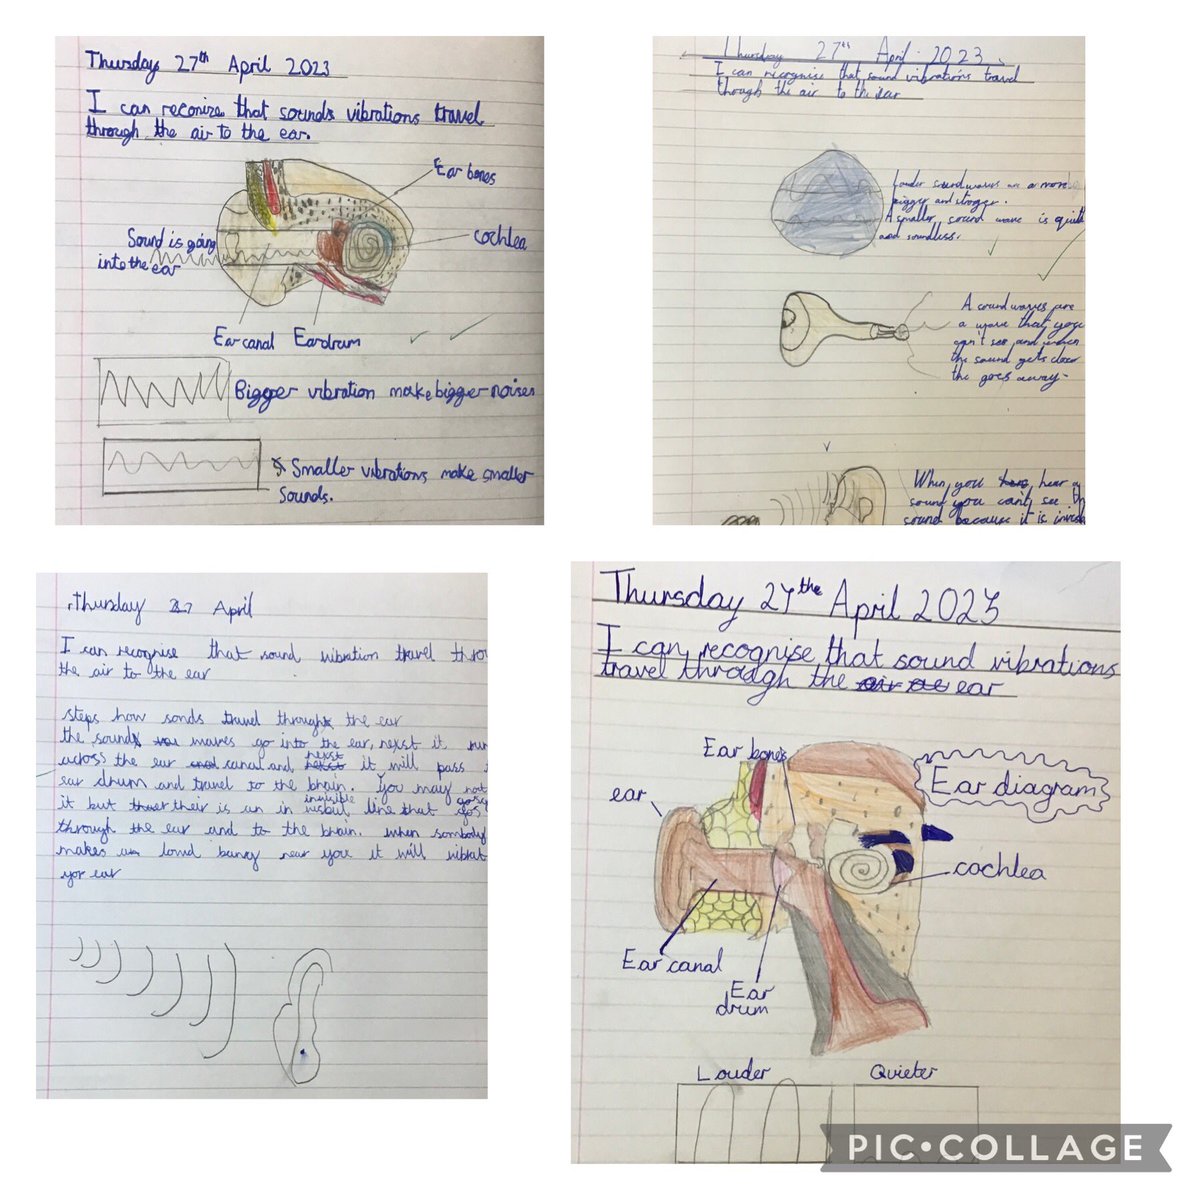 Thursday 27th April 2023
I can reconize that sounds vibrations travel
through the air to the ear.
Ear bones
Sound is going
into the ear
cochlea
Ear canal Eardrum
Bigger vibration make bigger noises
Smaller vibrations make smaller
Sounds.
Thursday 27th April 2023
I can recognise that sound vibrations travel
though the air to the ear
Louder soundwaves are a more
bigger and
A smaller sound wave is quiet
and soundless.
A soundwaves are
a wave that
can't see and when
the sound gets
the goes away-
When you hear a
sound you can't see
sound because it is
Thursday 27 April
I can recognise that sound vibration travel
the air to the ear
steps how sonds travel through the ear
the sound waves go into the ear, nexst it
across the ear canal and nexst it will pass
ear drum and travel to the brain. You may not
it but their is an invisible line that goes
through the ear and to the brain. when sombody
makes a loud bang near you it will vibrat
yor ear
Thursday 27the April 2023
I can recognise that sound vibrations
travel through the air ear
Ear bones
Ear diagram
ear
cochlea
Ear canal
Ear
drum
Louder Quieter
PIC•COLLAGE